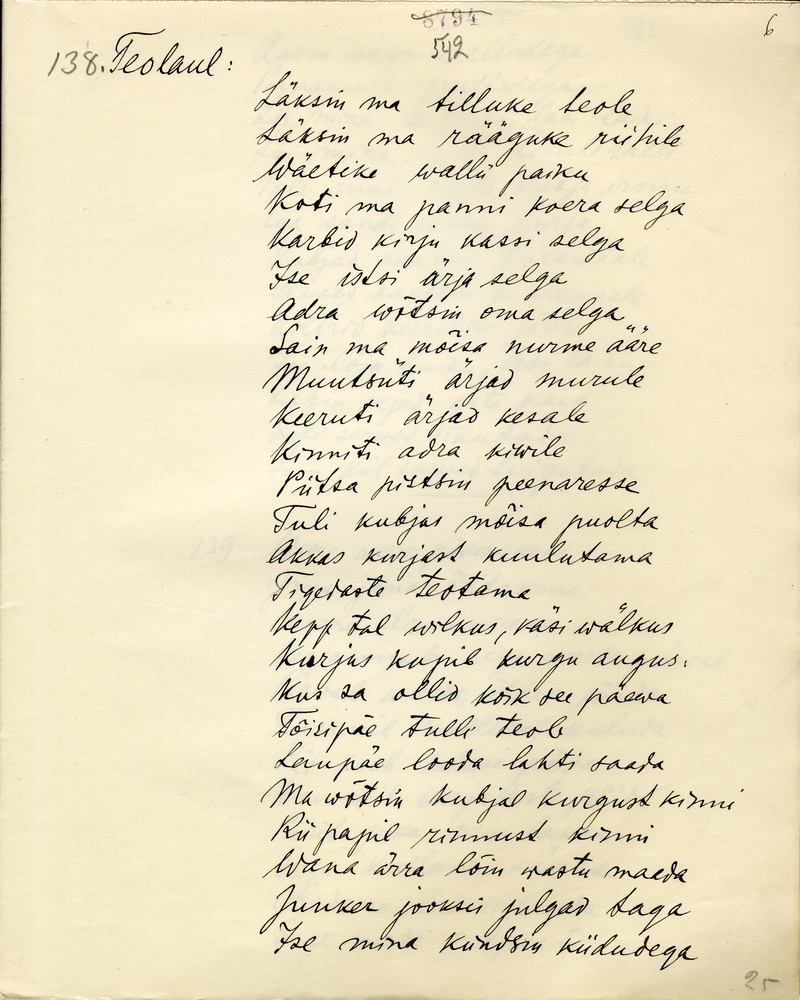 8794
542
6
138. Teolaul:
Läksin ma tilluke teole
Läksin ma rääguke riihile
Wäetike wallu paiku
Koti ma panni koera selga
Karbid kirju kassi selga
Ise istsi ärja selga
Adra wõtsin oma selga
Sain ma mõisa nurme ääre
Muutsüti ärjad murule
Keeruti ärjad kesale
Kinniti adra kiwile
Piitsa pistsin peenaresse
Tuli kubjas mõisa puolta
Akkas kurjast kuulutama
Tigedaste teotama
Kepp tal wilkus, käsi wälkus
Kurjus kupil kurgu augus:
Kus sa ollid kõik see päewa
Tõisipäe tulli teole
Laupäe looda lahti saada
Ma wõtsin kubjal kurgust kinni
Rii papil rinnust kinni
Wana ärra lõin wastu maada
Junker jooksis julgad taga
Ise mina kündsin küdudega
25